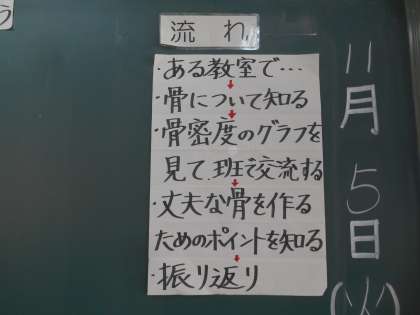 流れ
・ある教室で…
・骨について知る
・骨密度のグラフを
見て、班で交流する
・丈夫な骨を作る
ためのポイントを知る
・振り返り
11月5日(火)